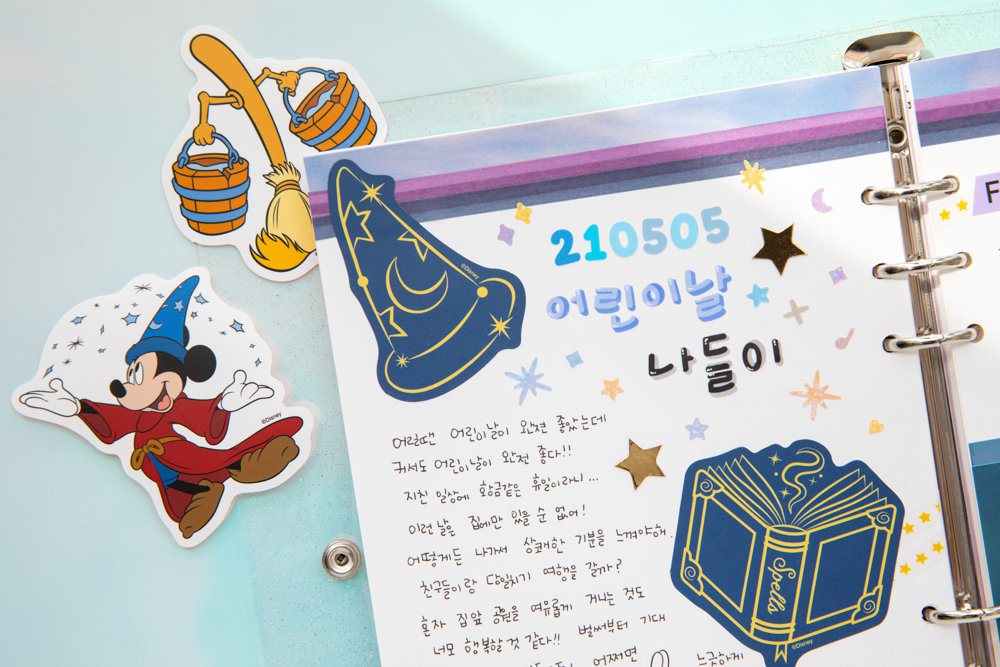 210505
어린이날
나들이
F
©Disney
©Disney
어릴땐 어린이날이 완전 좋았는데
커서도 어린이날이 완전 좋다!!
지친 일상에 황금같은 휴일이라니...
이런 날은 집에만 있을 수 없어!
어떻게든 나가서 상쾌한 기분을 느껴야해.
친구들이랑 당일치기 여행을 갈까?
혼자 집앞 공원을 여유롭게 거니는 것도
너모 행복할 것 같다!! 벌써부터 기대
어쩌면
느긋하게
Spells
©Disney